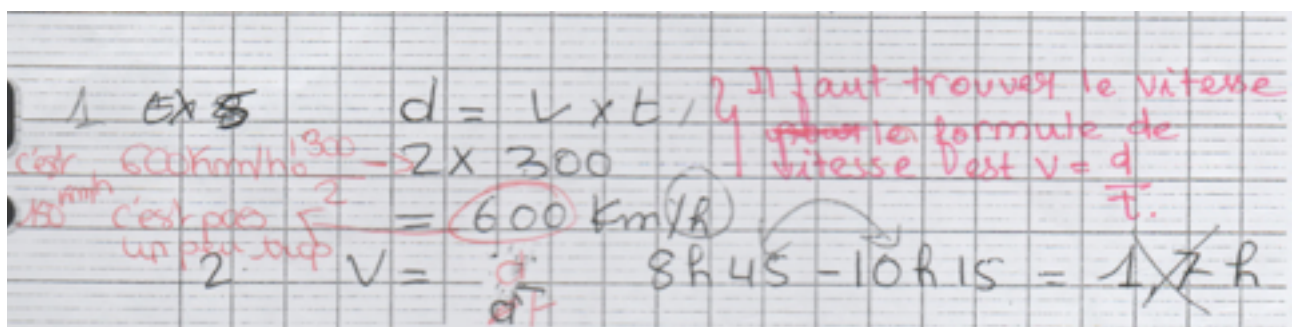 1 Ex 5 d = V x t, Il faut trouver le vitesse
la formule de
vitesse c'est V = d/t.
c'est 600km/h! 300/2 → 2 x 300
150 km/h c'est pas un peu trop
= 600 Km/h
2 V = d/t 8h45 - 10h15 = 1,7 h